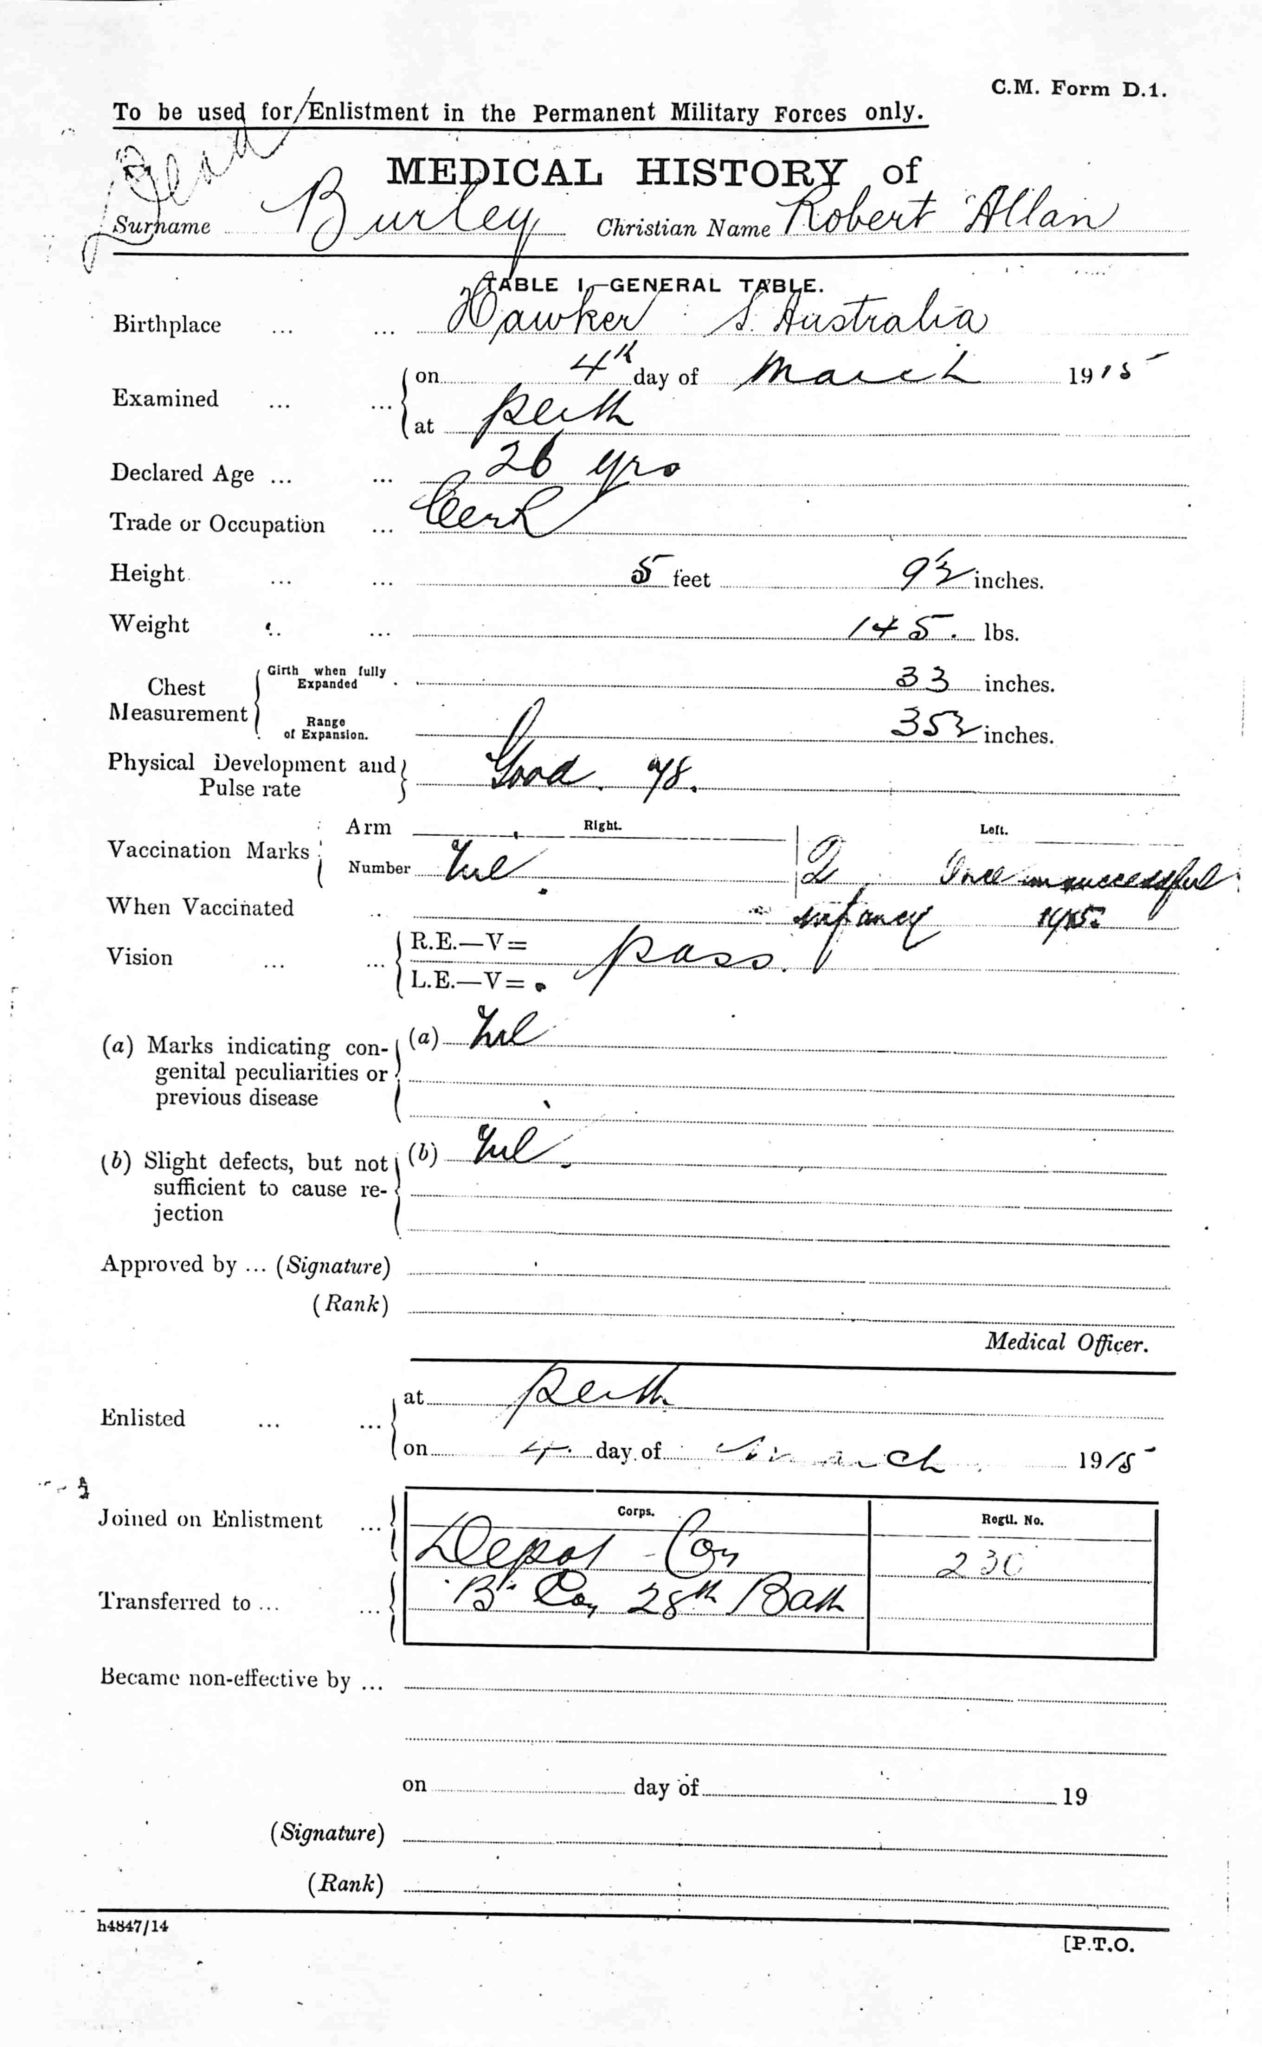 C.M. Form D.1.
To be used for Enlistment in the Permanent Military Forces only.
Dead
MEDICAL HISTORY of
Surname Burley Christian Name Robert Allan
TABLE I.—GENERAL TABLE.
Birthplace ... ... Hawker S. Australia
Examined ... ... on 4th day of March 1915
at Perth
Declared Age ... ... 26 yrs
Trade or Occupation ... Clerk
Height ... ... 5 feet 9½ inches.
Weight ... ... 145. lbs.
Chest Measurement Girth when fully Expanded 33 inches.
Range of Expansion. 35½ inches.
Physical Development and Pulse rate Good. 78.
Vaccination Marks Arm Right. Left.
Number Nil. 2 Once unsuccessful
When Vaccinated ... infancy 1915.
Vision ... ... R.E.—V= pass.
L.E.—V=
(a) Marks indicating con- (a) Nil
genital peculiarities or
previous disease
(b) Slight defects, but not (b) Nil.
sufficient to cause re-
jection
Approved by ... (Signature)
(Rank)
Medical Officer.
Enlisted ... ... at Perth
on 4. day of March 1915
Corps. Regtl. No.
Joined on Enlistment ... Depot Coy 230
Transferred to ... ... B. Coy 28th Batt
Became non-effective by ...
on day of 19
(Signature)
(Rank)
h4847/14
[P.T.O.